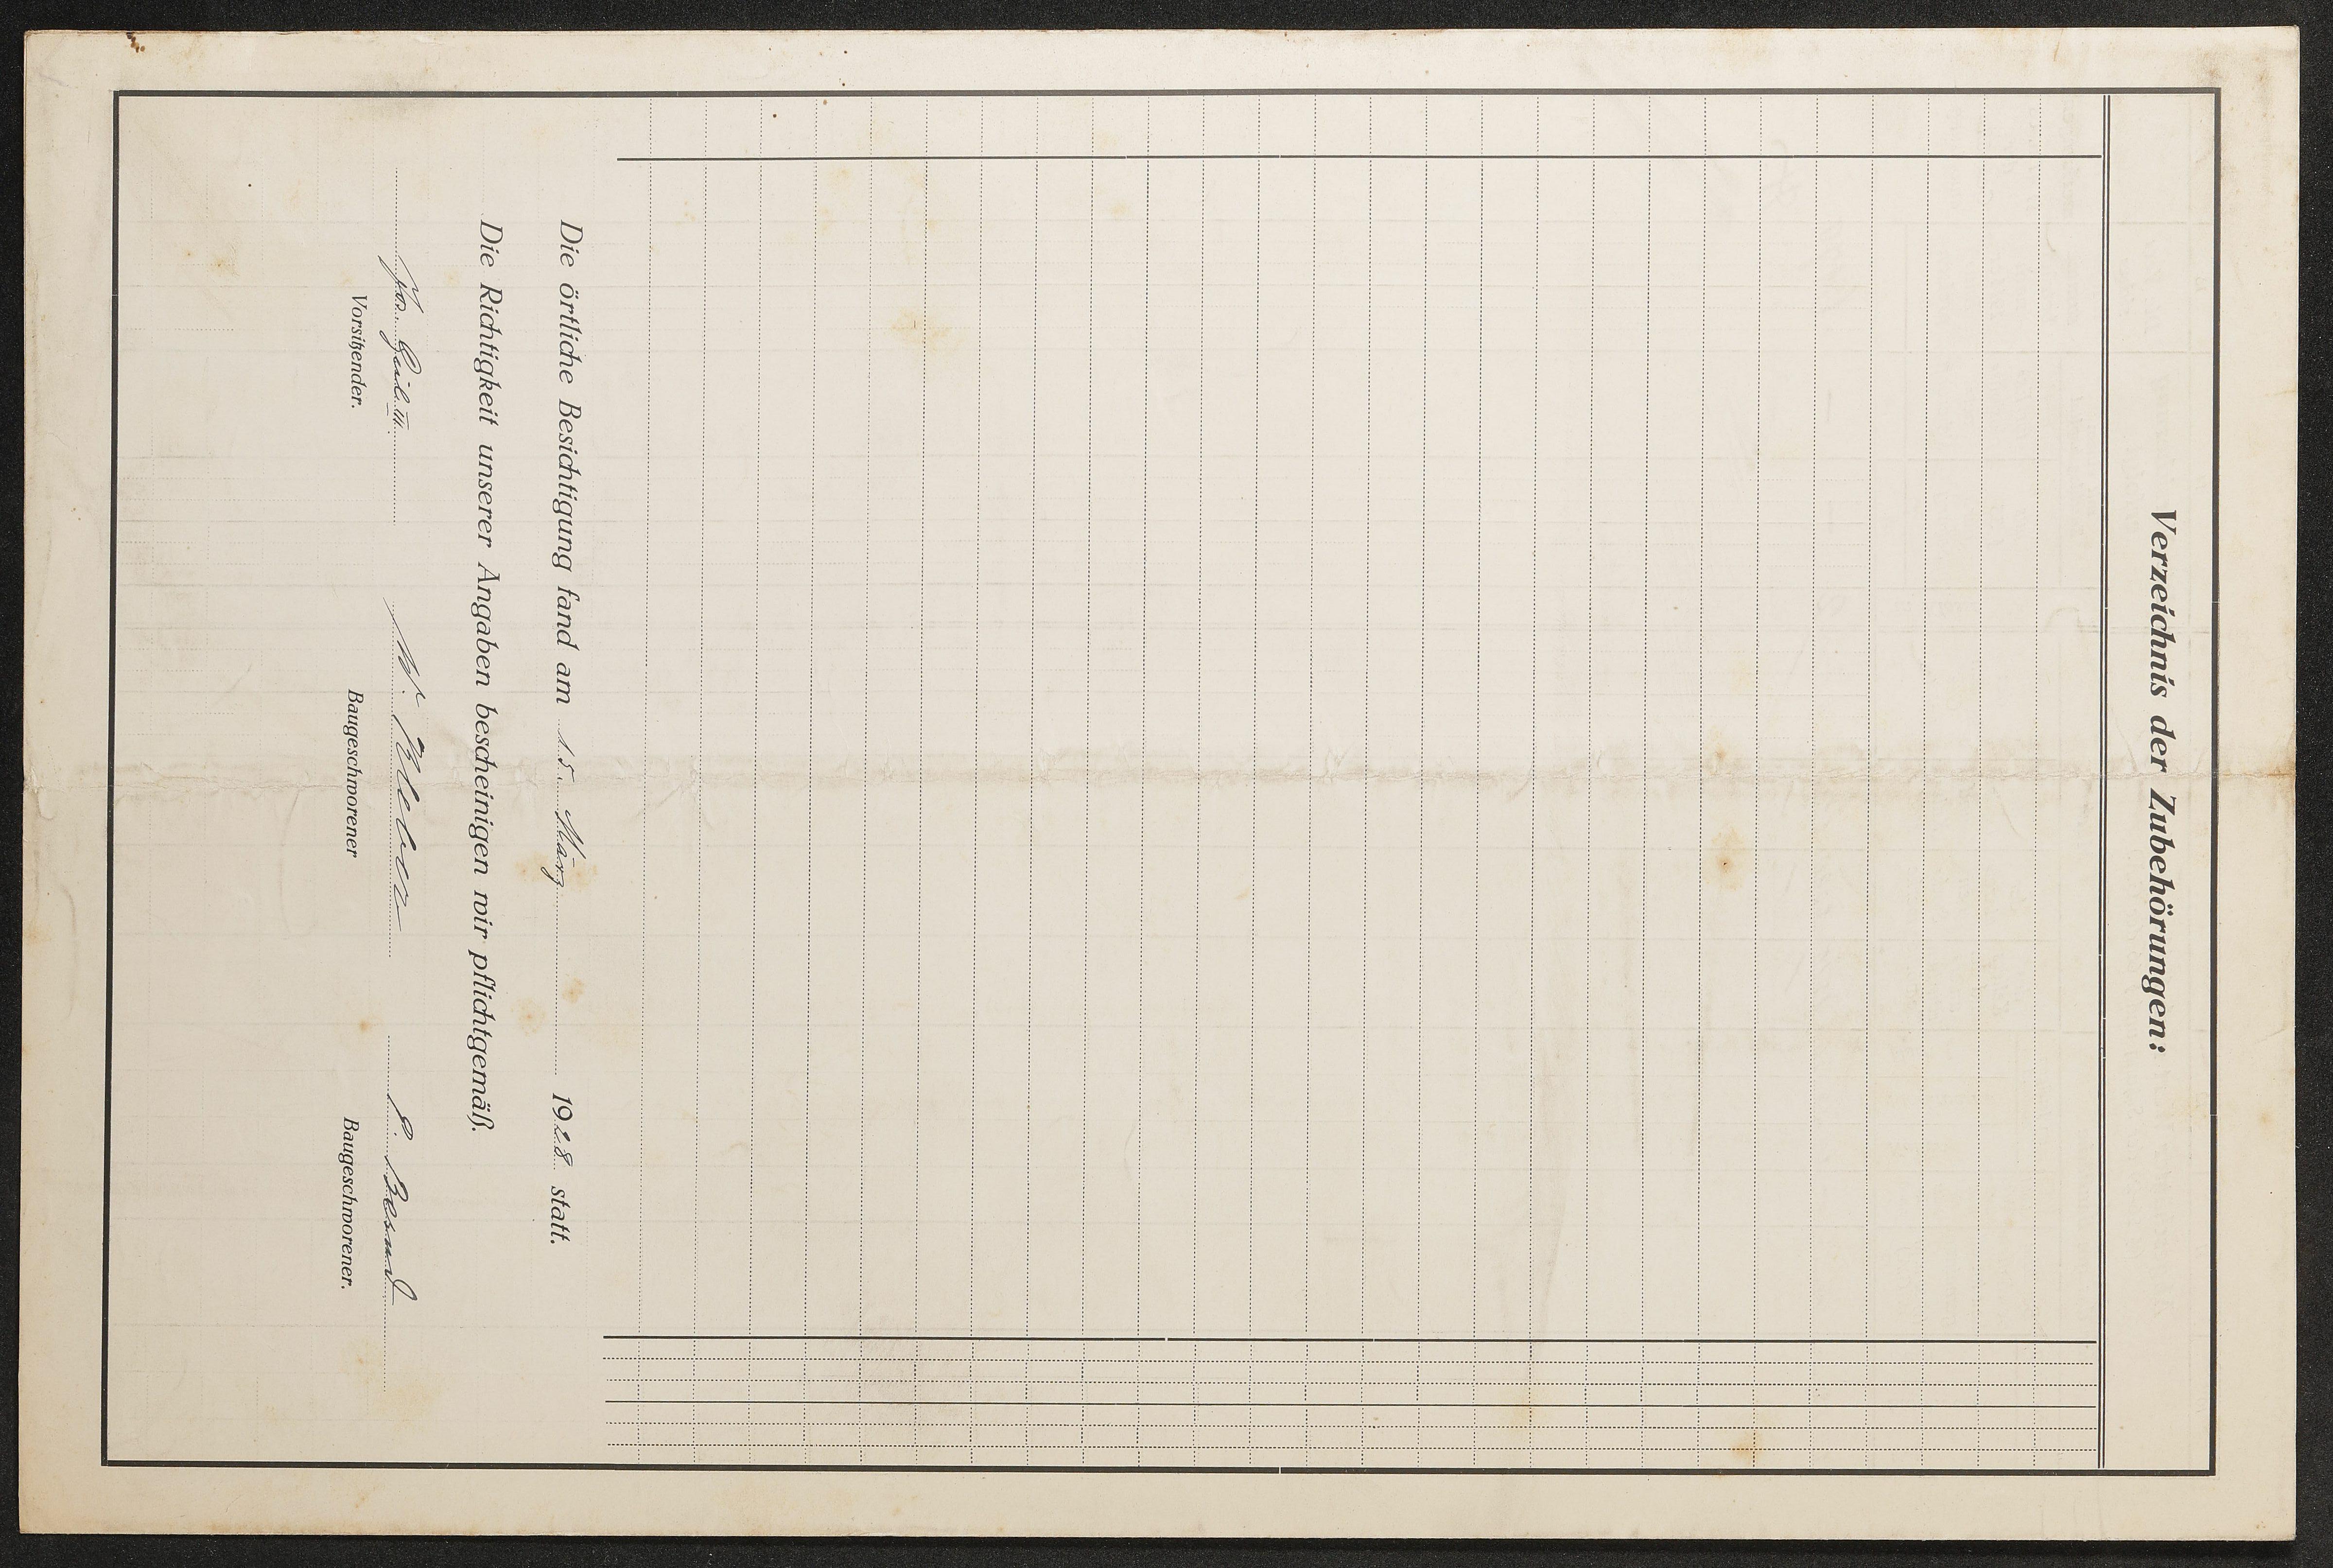 Verzeichnis der Zubehörungen:
Die örtliche Besichtigung fand am 15. März 1928 statt.
Die Richtigkeit unserer Angaben bescheinigen wir pflichtgemäß.
W. Weber
Vorsitzender. Baugeschworener Baugeschworener.